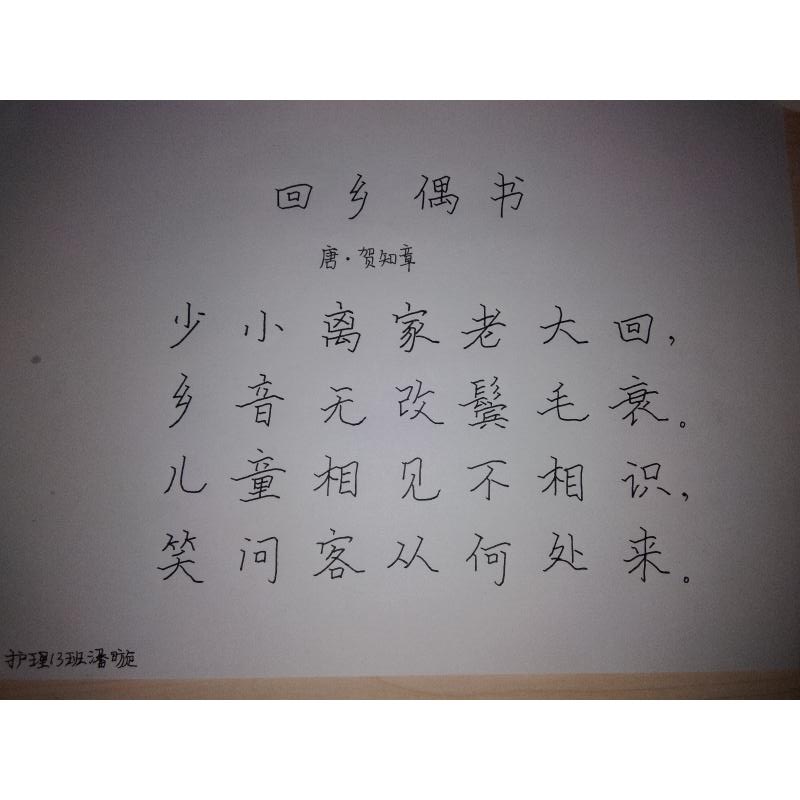 回乡偶书
唐·贺知章
少小离家老大回，
乡音无改鬓毛衰。
儿童相见不相识，
笑问客从何处来。
护理13班潘